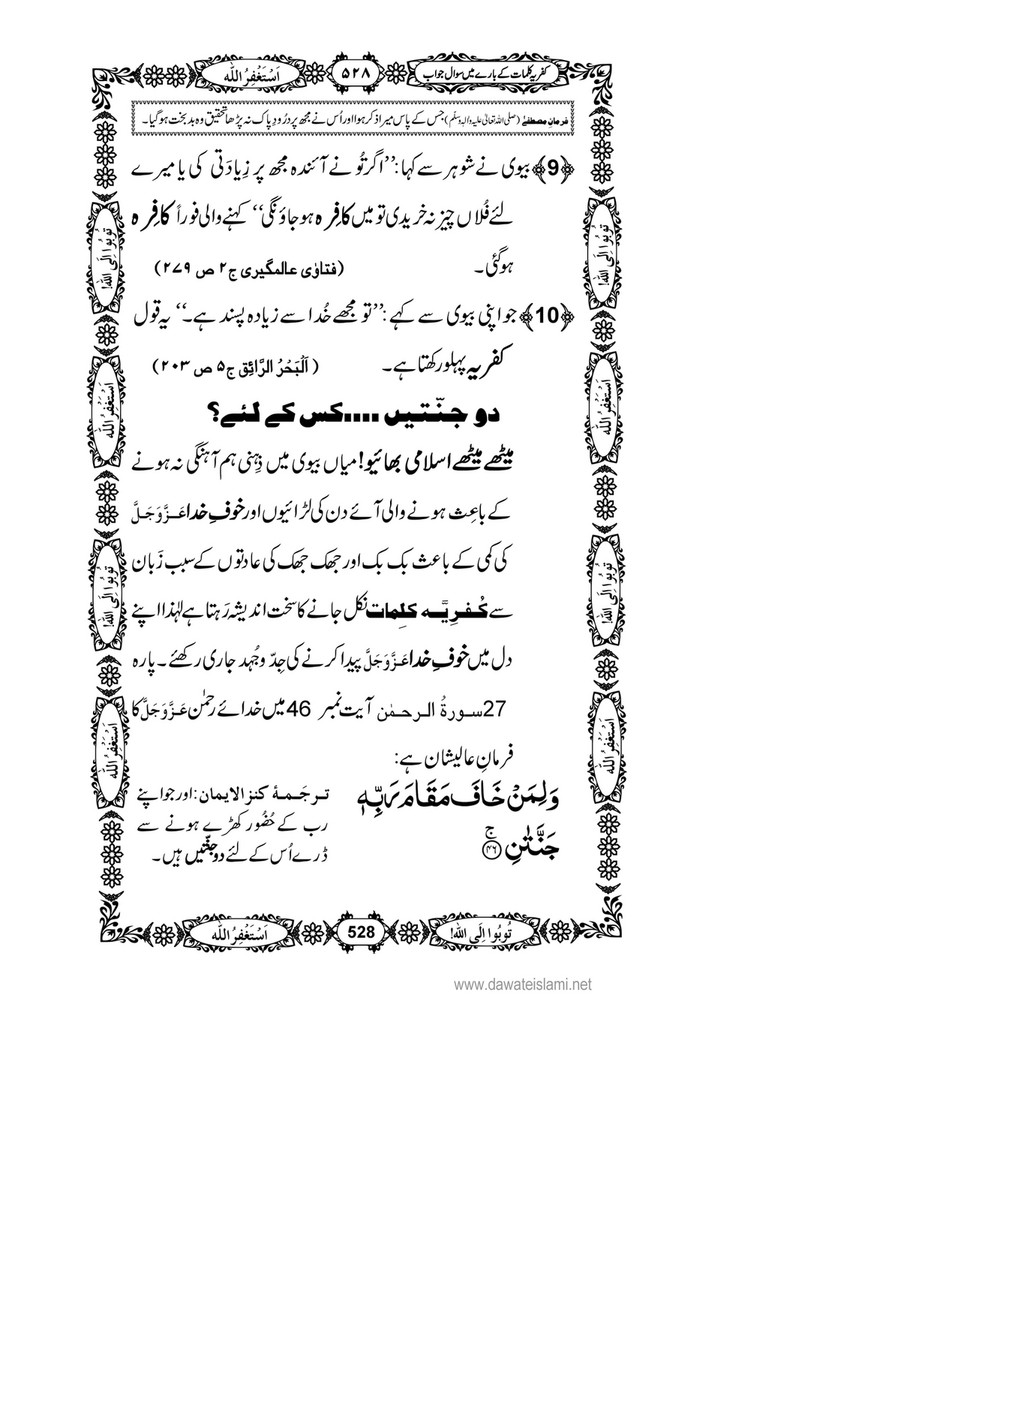 کفریہ کلمات کے بارے میں سوال جواب
۵۲۸
اَسْتَغْفِرُ اللّٰہ
فرمانِ مصطفےٰ (صلی اللہ تعالیٰ علیہ والہ وسلم) جس کے پاس میرا ذکر ہوا اور اُس نے مجھ پر دُرُودِ پاک نہ پڑھا تحقیق وہ بد بخت ہو گیا۔
﴿9﴾ بیوی نے شوہر سے کہا: ’’اگر تُو نے آئندہ مجھ پر زِیادَتی کی یا میرے
لئے فُلاں چیز نہ خریدی تو میں کافِرہ ہو جاؤنگی‘‘ کہنے والی فوراً کافِرہ
ہوگئی۔ (فتاوٰی عالمگیری ج۲ ص ۲۷۹)
﴿10﴾ جو اپنی بیوی سے کہے: ’’تو مجھے خُدا سے زیادہ پسند ہے۔‘‘ یہ قول
کفریہ پہلو رکھتا ہے۔ (اَلْبَحْرُ الرَّائِق ج۵ ص ۲۰۳)
دو جنّتیں ....کس کے لئے؟
میٹھے میٹھے اسلامی بھائیو! میاں بیوی میں ذِہنی ہم آہنگی نہ ہونے
کے باعِث ہونے والی آئے دن کی لڑائیوں اور خوفِ خدا عَزَّوَجَلَّ
کی کمی کے باعث بک بک اور جھک جھک کی عادتوں کے سبب زَبان
سے کُفرِیّہ کلِمات نکل جانے کا سخت اندیشہ رَہتا ہے لہٰذا اپنے
دل میں خوفِ خدا عَزَّوَجَلَّ پیدا کرنے کی جِدّ وجُہد جاری رکھئے۔ پارہ
27 سورۃُ الرحمٰن آیت نمبر 46 میں خدائے رحمٰن عَزَّوَجَلَّ کا
فرمانِ عالیشان ہے:
وَلِمَنْ خَافَ مَقَامَ رَبِّهٖ
جَنَّتٰنِ ۚ﴿۴۶﴾
ترجَمۂ کنز الایمان: اور جو اپنے
رب کے حُضُور کھڑے ہونے سے
ڈرے اُس کے لئے دو جنّتیں ہیں۔
تُوبُوا اِلَی اللّٰہ!
اَسْتَغْفِرُ اللّٰہ
تُوبُوا اِلَی اللّٰہ!
اَسْتَغْفِرُ اللّٰہ
تُوبُوا اِلَی اللّٰہ!
اَسْتَغْفِرُ اللّٰہ
تُوبُوا اِلَی اللّٰہ!
اَسْتَغْفِرُ اللّٰہ
تُوبُوا اِلَی اللّٰہ!
528
اَسْتَغْفِرُ اللّٰہ
www.dawateislami.net